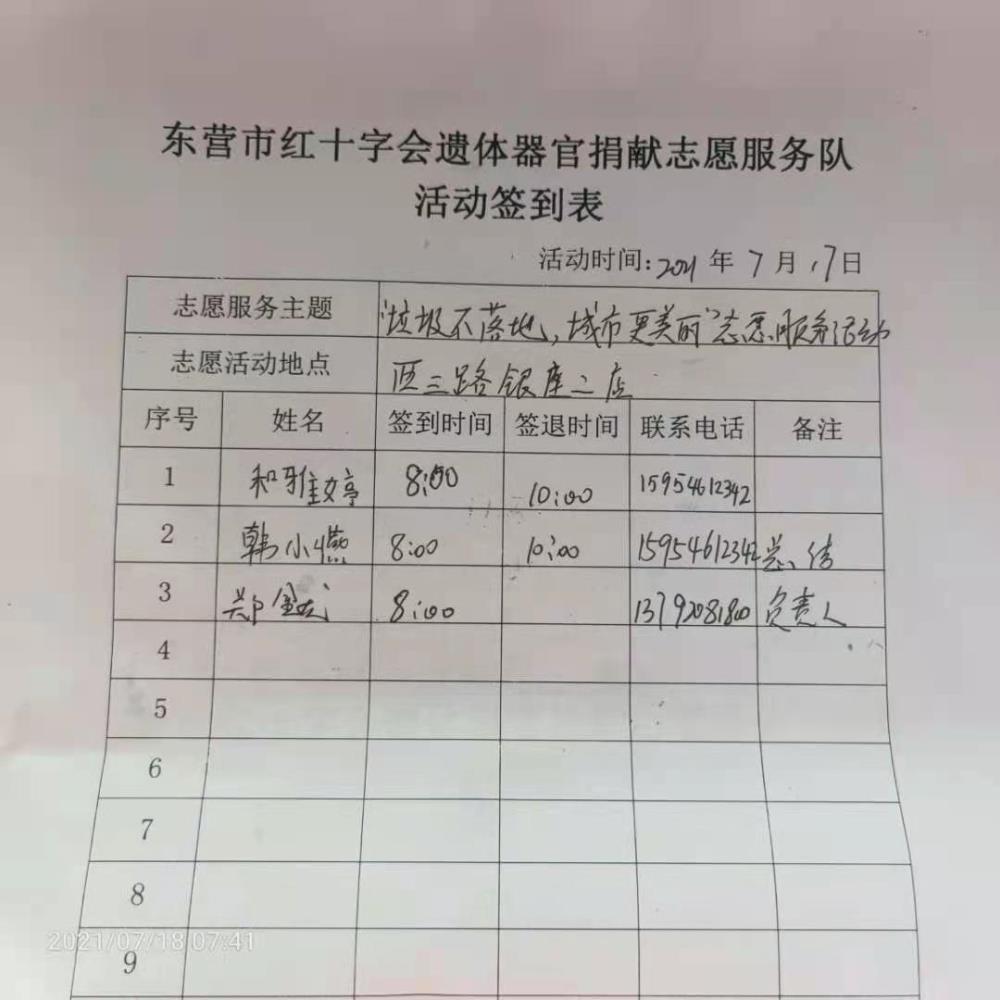 东营市红十字会遗体器官捐献志愿服务队
活动签到表
活动时间:2021年7月17日
志愿服务主题 "垃圾不落地,城市更美丽"志愿服务活动
志愿活动地点 西三路银座二店
序号 姓名 签到时间 签退时间 联系电话 备注
1 和雅婷 8:00 10:00 15954612342
2 韩小燕 8:00 10:00 15954612342 总结
3 郑 8:00 13792081800 负责人
4
5
6
7
8
9
2021/07/18 07:41